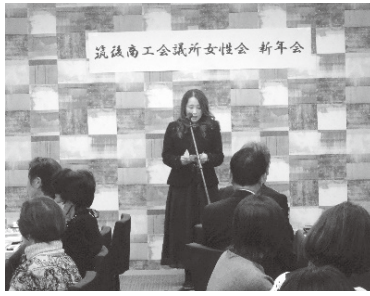 筑後商工会議所女性会 新年会